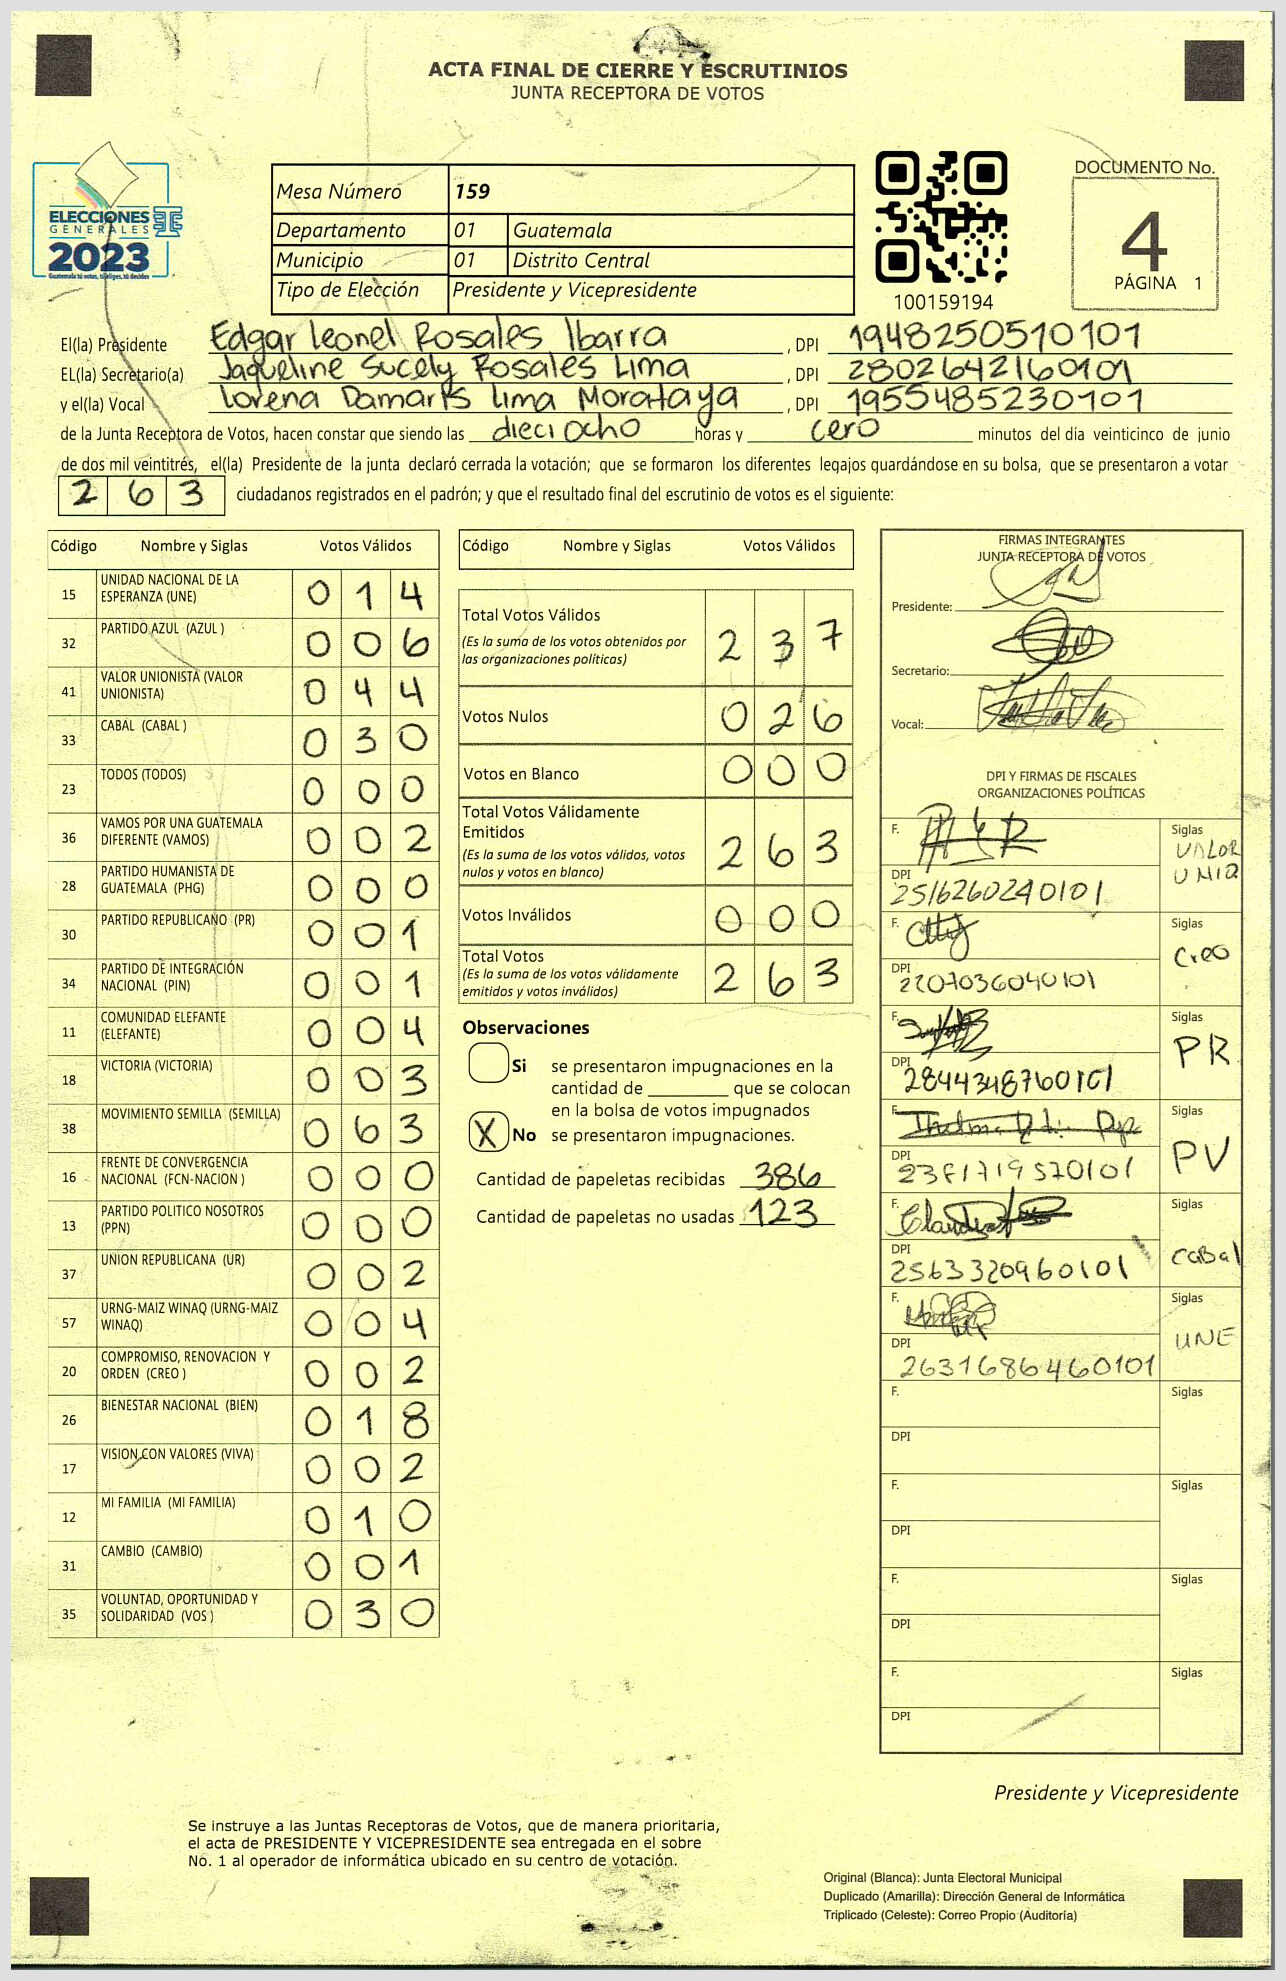 ACTA FINAL DE CIERRE Y ESCRUTINIOS
JUNTA RECEPTORA DE VOTOS
ELECCIONES
GENERALES
2023
Guatemala tú votas, tú eliges, tú decides
Mesa Número 159
Departamento 01 Guatemala
Municipio 01 Distrito Central
Tipo de Elección Presidente y Vicepresidente
100159194
DOCUMENTO No.
4
PÁGINA 1
El(la) Presidente Edgar Leonel Rosales Ibarra , DPI 1948250510101
EL(la) Secretario(a) Jaqueline Sucely Rosales Lima , DPI 2802642160101
y el(la) Vocal Lorena Damaris Lima Morataya , DPI 1955485230101
de la Junta Receptora de Votos, hacen constar que siendo las dieciocho horas y cero minutos del día veinticinco de junio
de dos mil veintitrés, el(la) Presidente de la junta declaró cerrada la votación; que se formaron los diferentes legajos guardándose en su bolsa, que se presentaron a votar
263 ciudadanos registrados en el padrón; y que el resultado final del escrutinio de votos es el siguiente:
Código Nombre y Siglas Votos Válidos
15 UNIDAD NACIONAL DE LA ESPERANZA (UNE) 014
32 PARTIDO AZUL (AZUL ) 006
41 VALOR UNIONISTA (VALOR UNIONISTA) 044
33 CABAL (CABAL ) 030
23 TODOS (TODOS) 000
36 VAMOS POR UNA GUATEMALA DIFERENTE (VAMOS) 002
28 PARTIDO HUMANISTA DE GUATEMALA (PHG) 000
30 PARTIDO REPUBLICANO (PR) 001
34 PARTIDO DE INTEGRACIÓN NACIONAL (PIN) 001
11 COMUNIDAD ELEFANTE (ELEFANTE) 004
18 VICTORIA (VICTORIA) 003
38 MOVIMIENTO SEMILLA (SEMILLA) 063
16 FRENTE DE CONVERGENCIA NACIONAL (FCN-NACION ) 000
13 PARTIDO POLITICO NOSOTROS (PPN) 000
37 UNION REPUBLICANA (UR) 002
57 URNG-MAIZ WINAQ (URNG-MAIZ WINAQ) 004
20 COMPROMISO, RENOVACION Y ORDEN (CREO ) 002
26 BIENESTAR NACIONAL (BIEN) 018
17 VISION CON VALORES (VIVA) 002
12 MI FAMILIA (MI FAMILIA) 010
31 CAMBIO (CAMBIO) 001
35 VOLUNTAD, OPORTUNIDAD Y SOLIDARIDAD (VOS ) 030
Código Nombre y Siglas Votos Válidos
Total Votos Válidos 237
(Es la suma de los votos obtenidos por
las organizaciones políticas)
Votos Nulos 026
Votos en Blanco 000
Total Votos Válidamente
Emitidos 263
(Es la suma de los votos válidos, votos
nulos y votos en blanco)
Votos Inválidos 000
Total Votos 263
(Es la suma de los votos válidamente
emitidos y votos inválidos)
Observaciones
Si se presentaron impugnaciones en la
cantidad de ________ que se colocan
en la bolsa de votos impugnados
X No se presentaron impugnaciones.
Cantidad de papeletas recibidas 386
Cantidad de papeletas no usadas 123
FIRMAS INTEGRANTES
JUNTA RECEPTORA DE VOTOS
Presidente:
Secretario:
Vocal:
DPI Y FIRMAS DE FISCALES
ORGANIZACIONES POLÍTICAS
F. Siglas VALOR UNIO
DPI 2516260240101
F. Siglas Creo
DPI 2207036040101
F. Siglas PR
DPI 2844348760101
F. Siglas PV
DPI 2381719570101
F. Siglas CaBal
DPI 2563320960101
F. Siglas UNE
DPI 2631686460101
F. Siglas
DPI
F. Siglas
DPI
F. Siglas
DPI
F. Siglas
DPI
Presidente y Vicepresidente
Se instruye a las Juntas Receptoras de Votos, que de manera prioritaria,
el acta de PRESIDENTE Y VICEPRESIDENTE sea entregada en el sobre
No. 1 al operador de informática ubicado en su centro de votación.
Original (Blanca): Junta Electoral Municipal
Duplicado (Amarilla): Dirección General de Informática
Triplicado (Celeste): Correo Propio (Auditoría)